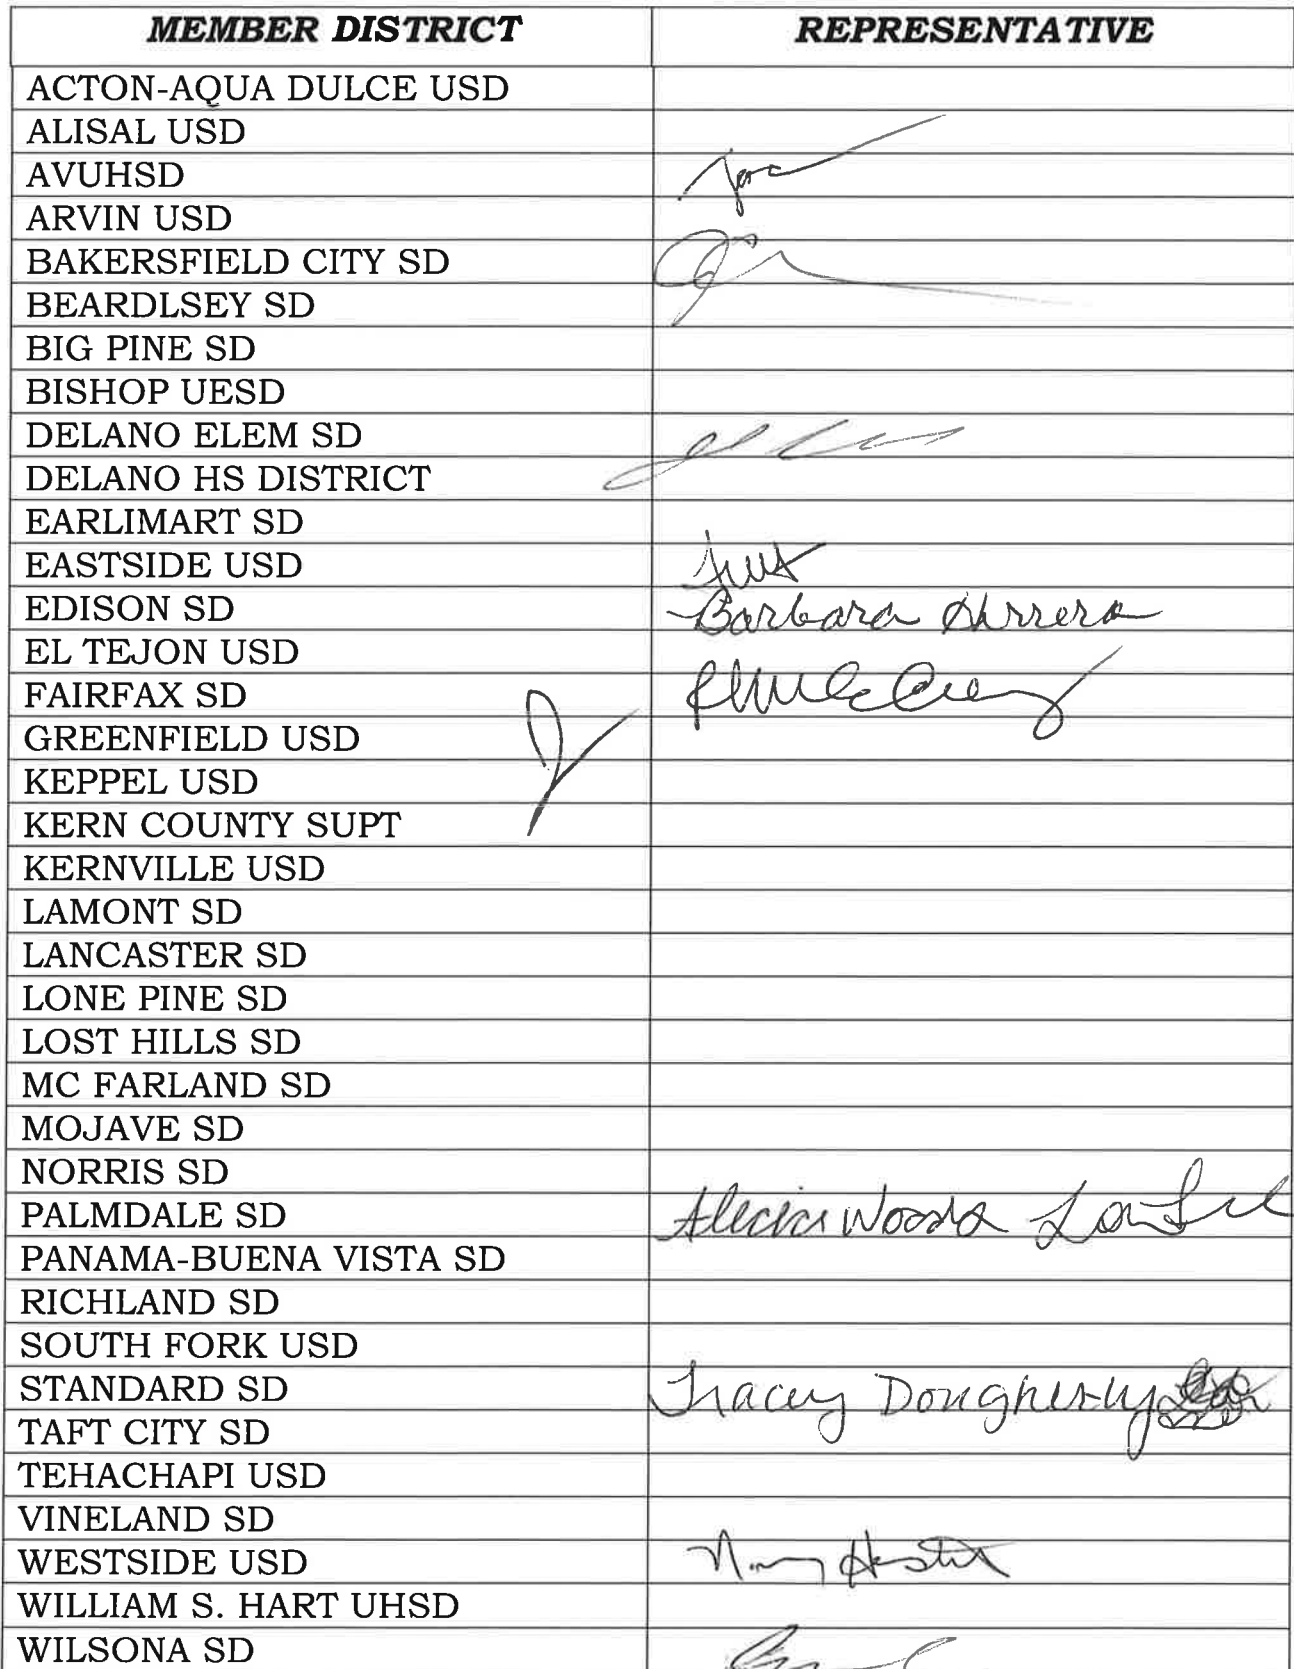 MEMBER DISTRICT REPRESENTATIVE
ACTON-AQUA DULCE USD
ALISAL USD
AVUHSD
ARVIN USD
BAKERSFIELD CITY SD
BEARDLSEY SD
BIG PINE SD
BISHOP UESD
DELANO ELEM SD
DELANO HS DISTRICT
EARLIMART SD
EASTSIDE USD
EDISON SD Barbara Herrera
EL TEJON USD
FAIRFAX SD
GREENFIELD USD
KEPPEL USD
KERN COUNTY SUPT
KERNVILLE USD
LAMONT SD
LANCASTER SD
LONE PINE SD
LOST HILLS SD
MC FARLAND SD
MOJAVE SD
NORRIS SD
PALMDALE SD
PANAMA-BUENA VISTA SD
RICHLAND SD
SOUTH FORK USD
STANDARD SD Tracey Dougherty
TAFT CITY SD
TEHACHAPI USD
VINELAND SD
WESTSIDE USD
WILLIAM S. HART UHSD
WILSONA SD